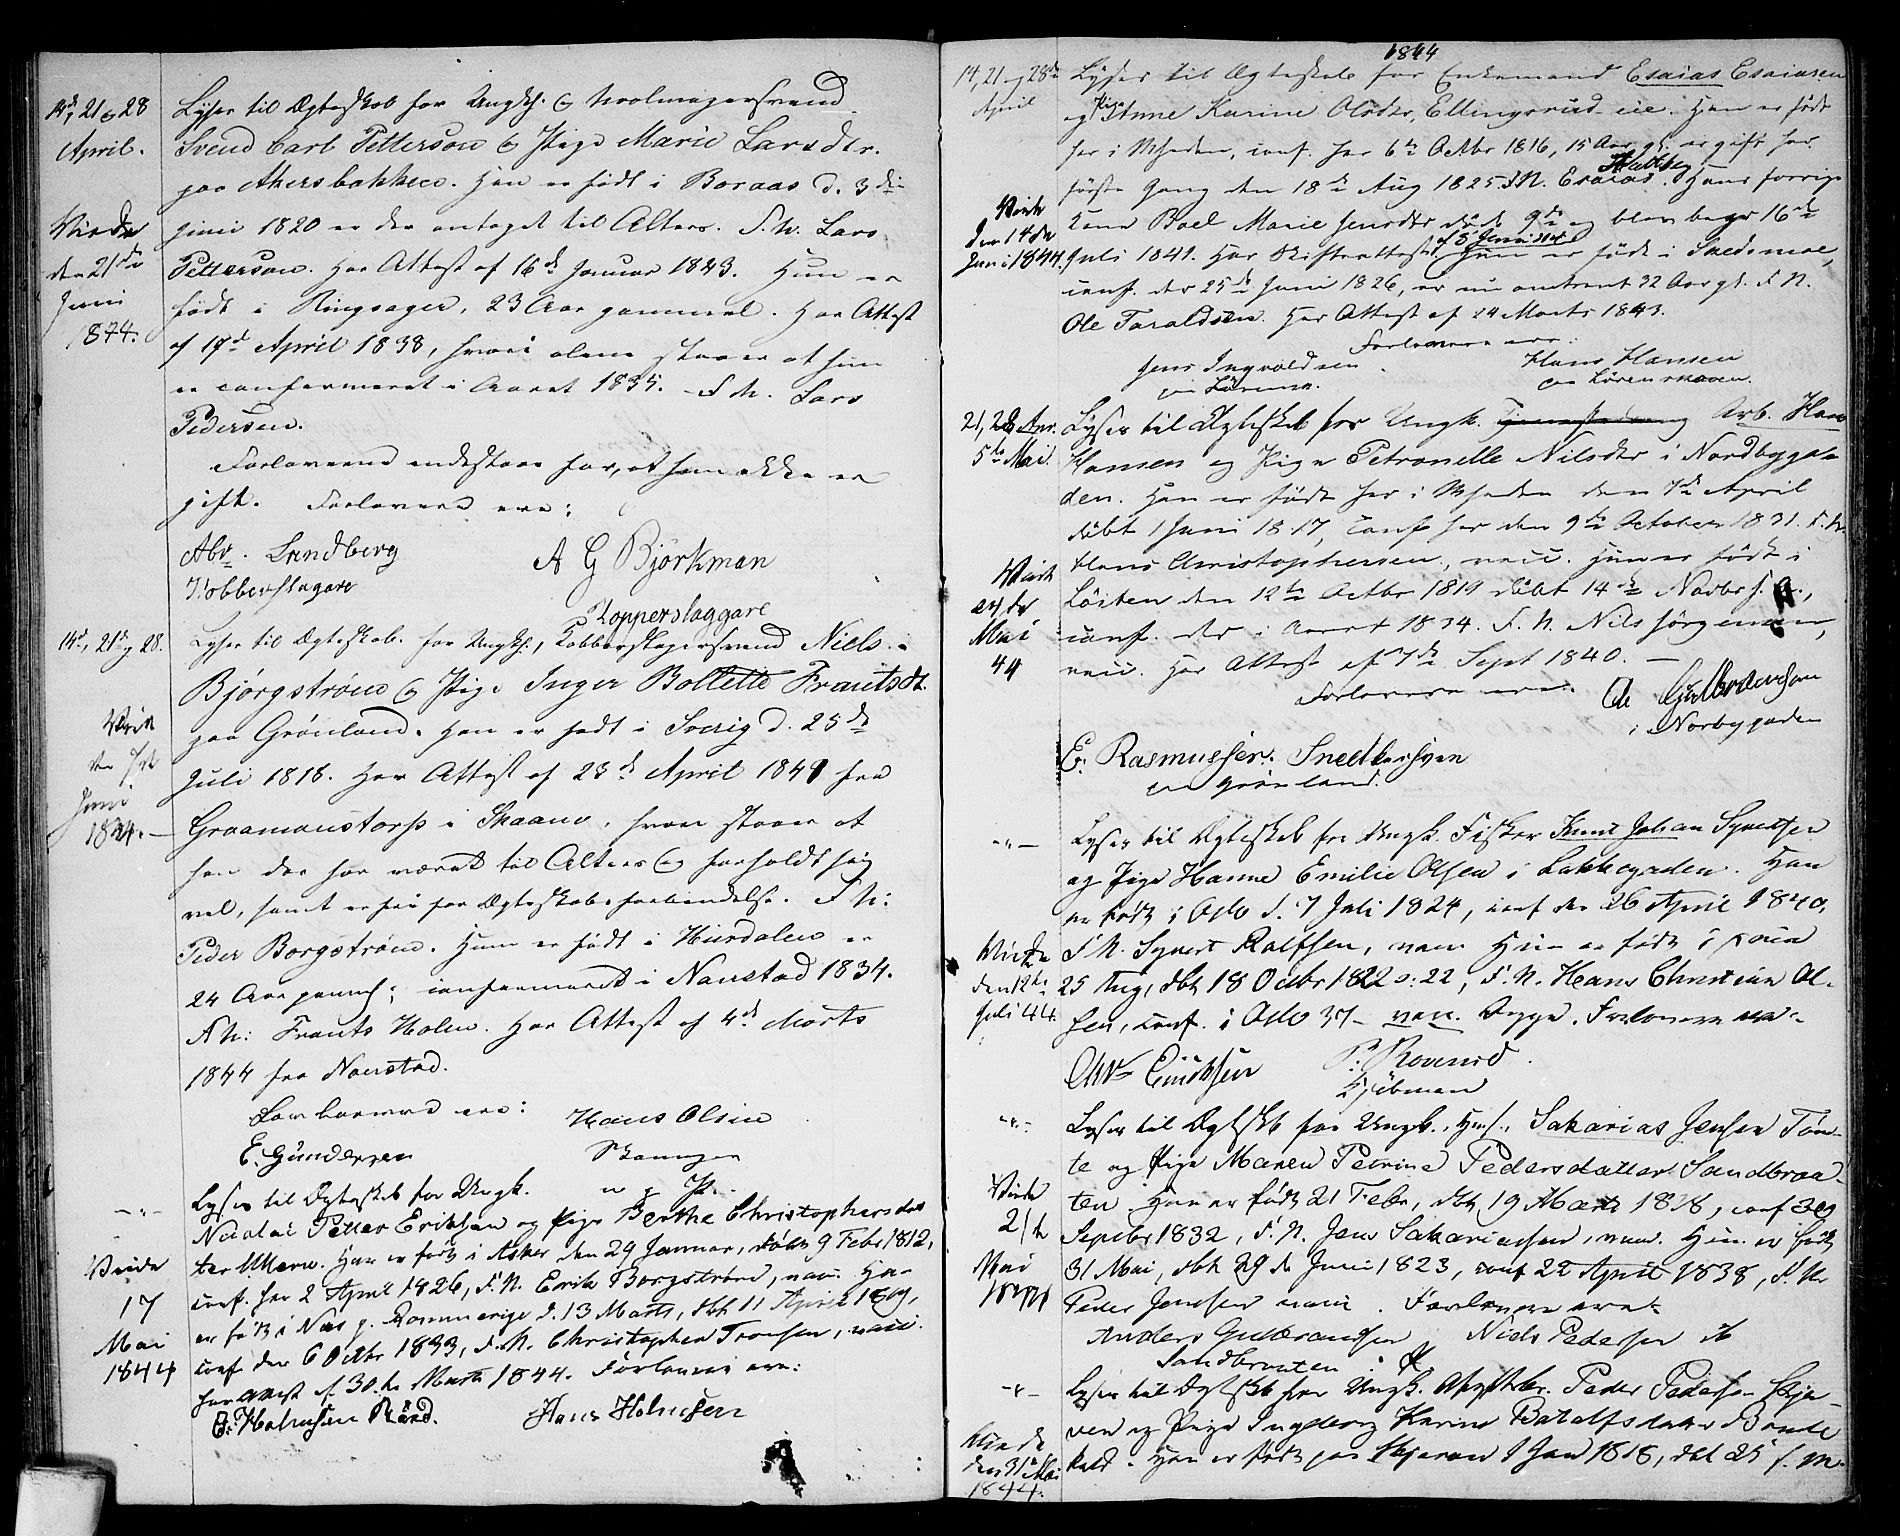 14d, 21 og 28
April.
Lyses til Ægteskab for Ungk. &
Svend Carl Petterson & Pige Marie Larsdtr.
paa Akersbakken. Han er født i Boraas d. 3die
Juni 1820 er der antaget til Alters. F. N. Lars
Petterson. Har Attest af 16de Januar 1843. Hun er
født i Ringsager, 23 Aar gammel. Har Attest
af April 1838, hvori alene staaer at hun
er confirmeret i Aaret 1835. F. N. Lars
Pedersen.
Viede
den 21de
Juni
Forloverne indestaae for, at han ikke er
gift. Forlovere ere:
Abr. Lundberg
Kobberslagare
A G Björkman
Kopperslaggare
14d, 21de og 28.
Lyses til Ægteskab for Ungk., Kobberslagersvend Niels
Bjørgstrøm & Pige Inger Bollette Frantsdt.
paa Grønland. Han er født i Sverig d. 25de
Juli 1818. Har Attest af 23de April 184 fra
Graamanstorp i Skaane, hvori staaer at
han der har været til Alters og forholdt sig
vel, samt er fri for Ægteskabsforbindelse. F. N:
Peder Borgstrøm. Hun er født i Hurdalen er
24 Aar gamel; confirmeret i Nanstad 1834.
F. N: Frants Holm. Har Attest af 4de Marts
1844 fra Nanstad.
Viede
Juni
Forloverne ere:
E. Gundersen
Hans Olsen
Lyses til Ægteskab for Ungk.
Nicolai Petter Eriksen og Pige Berthe Christophersdat
ter Han er født i Asker den 29 Januar, døbt 9 Febr 1812,
conf. her 2 April 1826, F. N. Erik Borgstrøm, vacc. Hun
er født i Næs p. Rommerige d. 13 Marts, dbt 11 April 1819,
conf. der 6 Octbr 1833, F. N. Christopher Tronsen, vacc.
har attest af 30te Marts 1844. Forlovere ere:
Viede
17
Mai
1844
Hans Holmsen
1844
14, 21 og 28de
April
Lyses til Ægteskab for Enkemand Esaias Esaiasen
og Pige Anne Karine Olsdtr, Ellingsrud-eie. Han er født
her i Menheden, conf. her 6te Octbr 1816, 15 Aar gl. er gift her
første Gang den 18de Aug 1825. F. N. Esaias. Hans forrige
Kone Boel Marie Jensdtr døde 9de og blev begr 16de
Juli 1841. Har Skifteattest. Hun er født i Skedsmoe,
conf. der 25de Juni 1826, er nu omtrent 32 Aar gl. F. N.
Ole Taraldsen. Har Attest af 24 Marts 1843.
Viede
den 14de
Juni 1844
Forlovere ere:
Jens Ingvoldsen
paa Lørenn.
Hans Hansen
paa Lørenskoven.
21, 28 Apr.
5te Mai.
Lyses til Ægteskab for Ungk. Arb. Hans
Hansen og Pige Petronelle Nilsdtr i Nordbygaa-
den. Han er født her i Menheden den 7de April
døbt 1 Juni 1817, conf her den 9te October 1831. F. N.
Hans Christophersen, vacc. Hun er født i
Løiten den 12te Octbr 1819 døbt 14de Novbr s. A.,
conf. der i Aaret 1834. F. N. Nils Jørgensen,
vacc. Har Attest af 7de Sept 1840.
Viede
Mai
44
Forlovere ere:
Ole Gulbrandsen
i Norbygaden
E. Rasmussen. Snedkersven
paa Grønland.
Lyses til Ægteskab for Ungk. Fisker Knut Johan Syvertsen
og Pige Hanne Emilie Olsen i Lakkegaden. Han
er født i Oslo d. 7 Juli 1824, conf der 26 April 1840,
F. N. Syvert Rolfsen, vacc. Hun er født i
25 Aug, dbt 18 Octbr 1822 o: 22, F. N. Hans Christian Ol-
sen, conf. i Oslo 37 - vacc. Begge. Forlovere ere:
Viede
den 12te
Juli 44.
P. Rovend
Lyses til Ægteskab for Ungk., Hus., Sakarias Jensen Tøm-
te og Pige Maren Petrine Pedersdatter Sandbraa-
ten Han er født 21 Febr, dbt 19 Marts 1818, conf 30
Septbr 1832, F. N. Jens Sakariassen, vacc. Hun er født
31 Mai, dbt 29de Juni 1823, conf 22 April 1838, F. N.
Peder Jensen vacc. Forlovere ere:
Viede
Mai
1844
Anders Gulbrandsen
Sandbraaten
Niels Pedersen
Lyses til Ægteskab for Ungk. Peder Pedersen Skja-
ven og Pige Ingeborg Karine Botolfsdatter Bonde
Han er født paa Skjaven 1 Jan 1818, dbt 25 s. M.
Viede
den 31 Mai
1844.